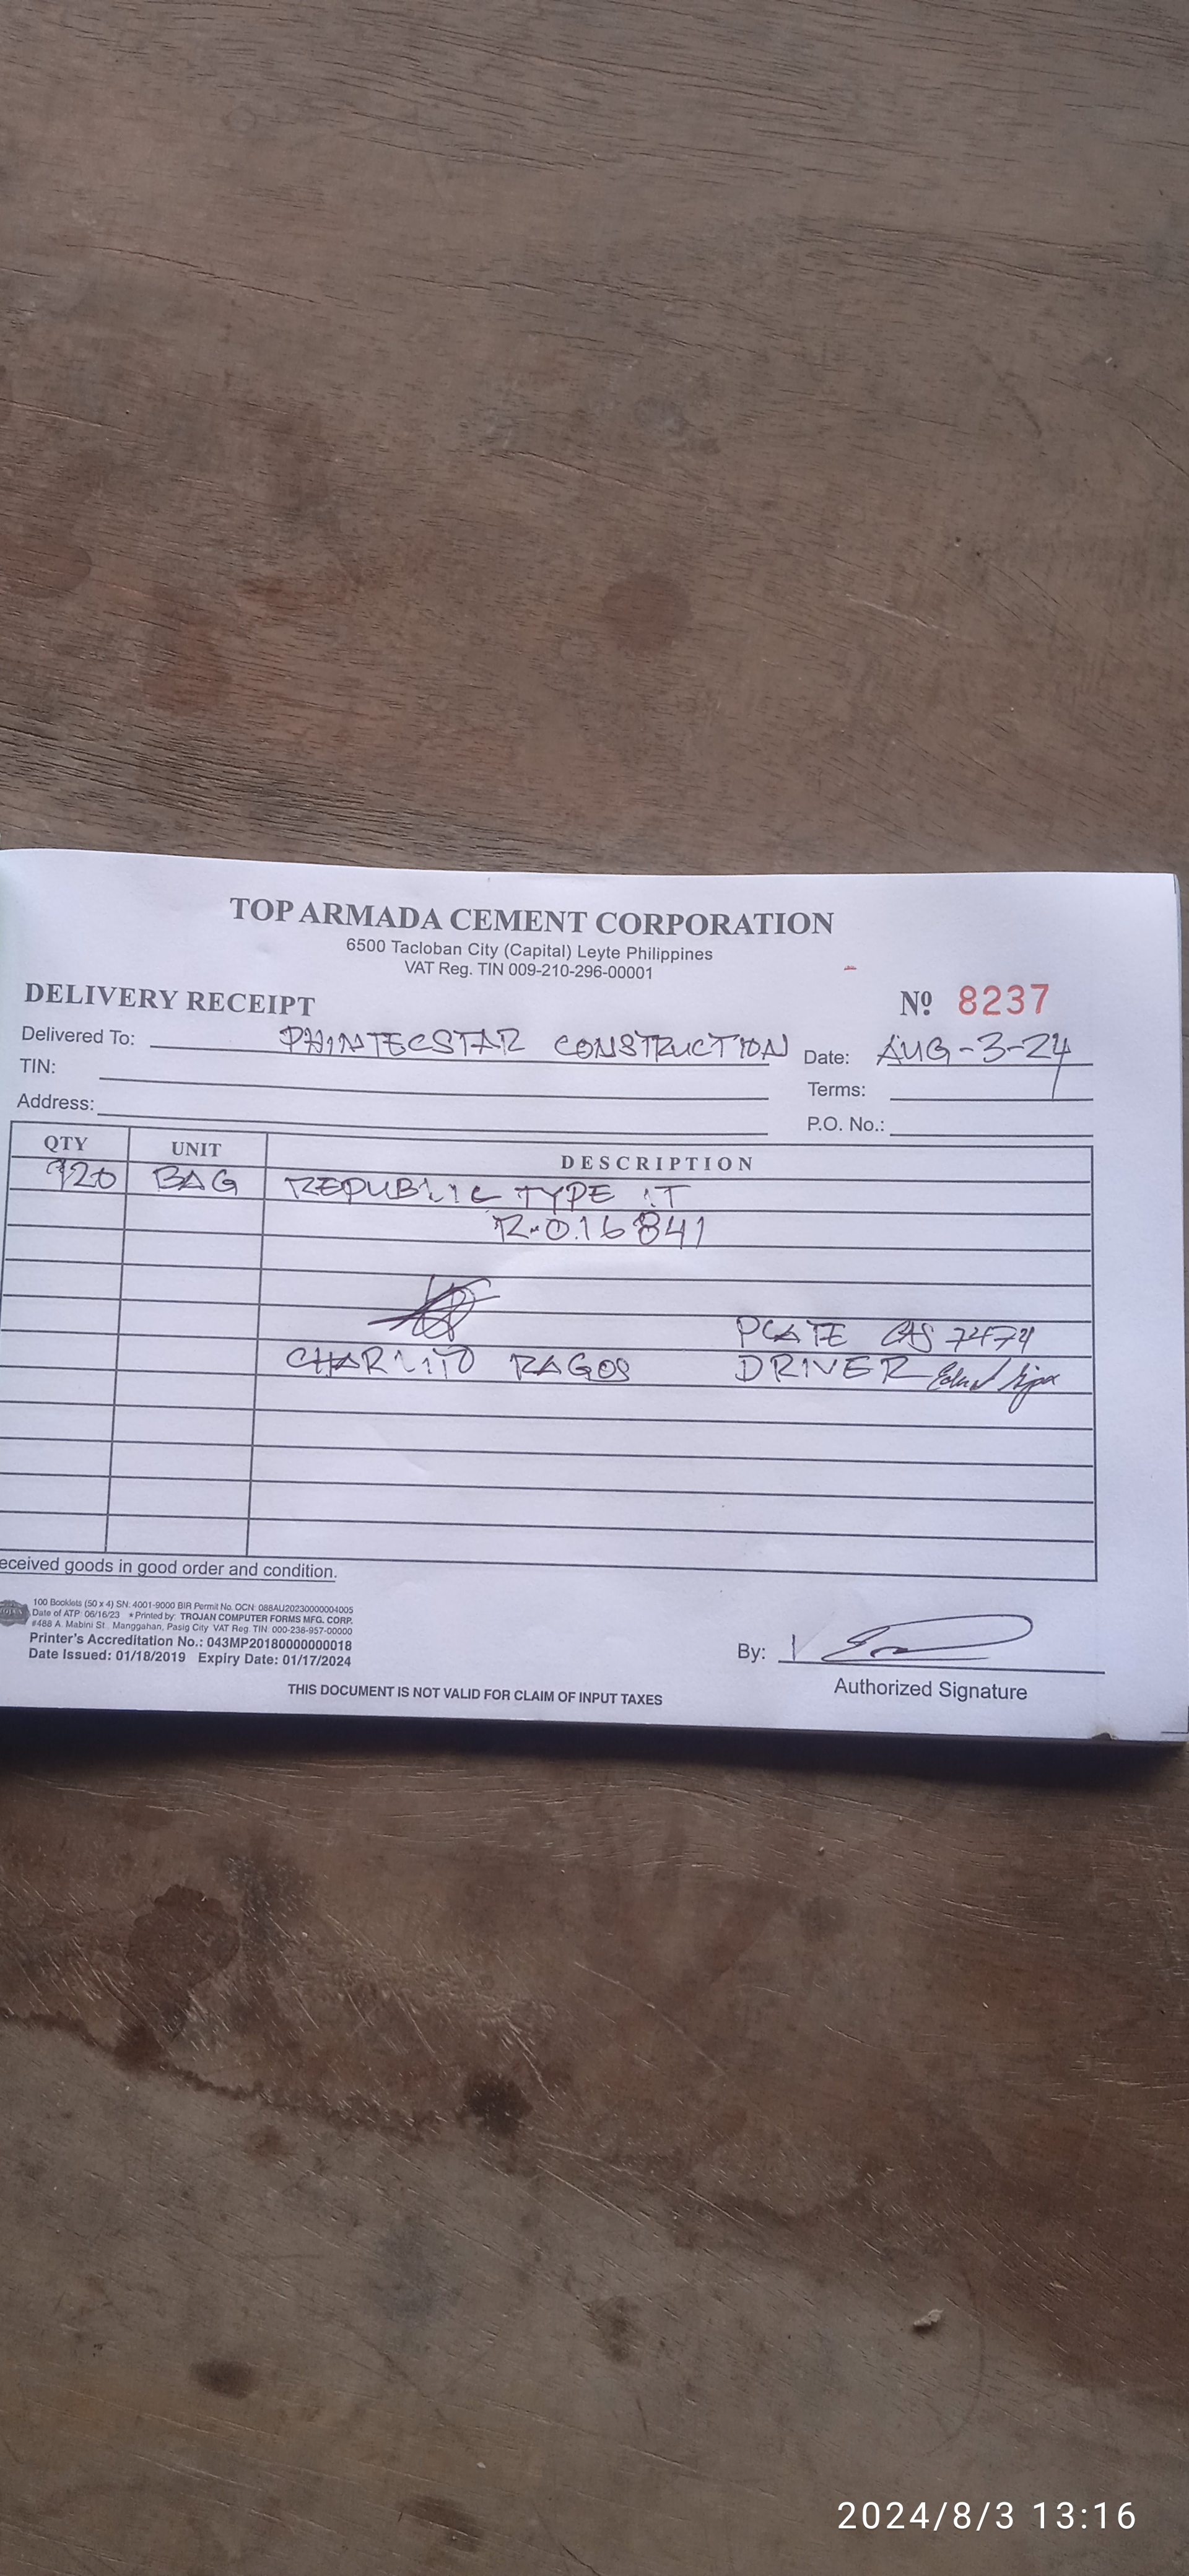 TOP ARMADA CEMENT CORPORATION
6500 Tacloban City (Capital) Leyte Philippines
VAT Reg. TIN 009-210-296-00001
DELIVERY RECEIPT
Nº 8237
Delivered To: PHINTECSTAR CONSTRUCTION Date: AUG-3-24
TIN: Terms:
Address: P.O. No.:
QTY UNIT DESCRIPTION
920 BAG REPUBLIC TYPE 1T
R.016841
PLATE CAS 7474
CHARLITO RAGOS DRIVER
eceived goods in good order and condition.
100 Booklets (50 x 4) SN: 4001-9000 BIR Permit No. OCN: 088AU20230000004005
Date of ATP: 06/16/23 * Printed by: TROJAN COMPUTER FORMS MFG. CORP.
#488 A. Mabini St., Manggahan, Pasig City VAT Reg. TIN: 000-236-957-00000
Printer's Accreditation No.: 043MP20180000000018
Date Issued: 01/18/2019 Expiry Date: 01/17/2024
By:
Authorized Signature
THIS DOCUMENT IS NOT VALID FOR CLAIM OF INPUT TAXES
2024/8/3 13:16